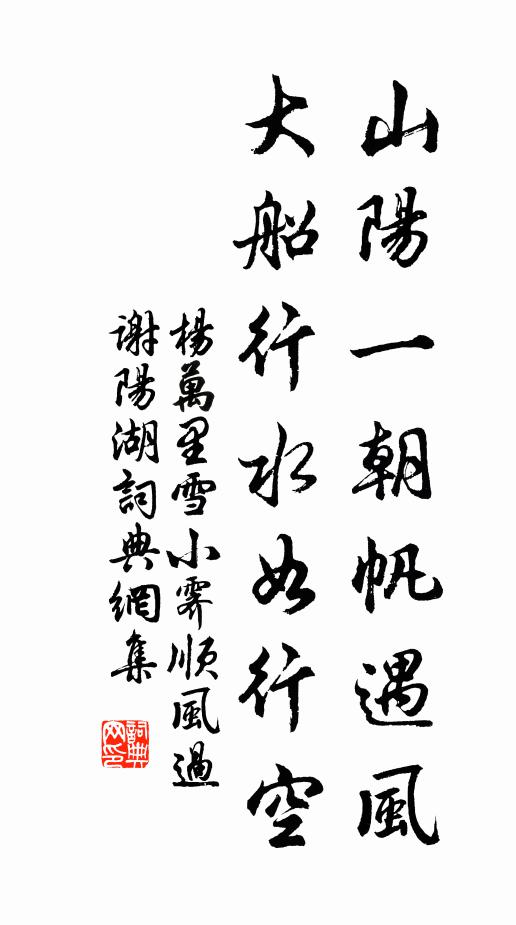 山陽一朝帆遇風
大船行水如行空
楊萬里雪小霽順風過
謝陽湖詞典網集
詞典